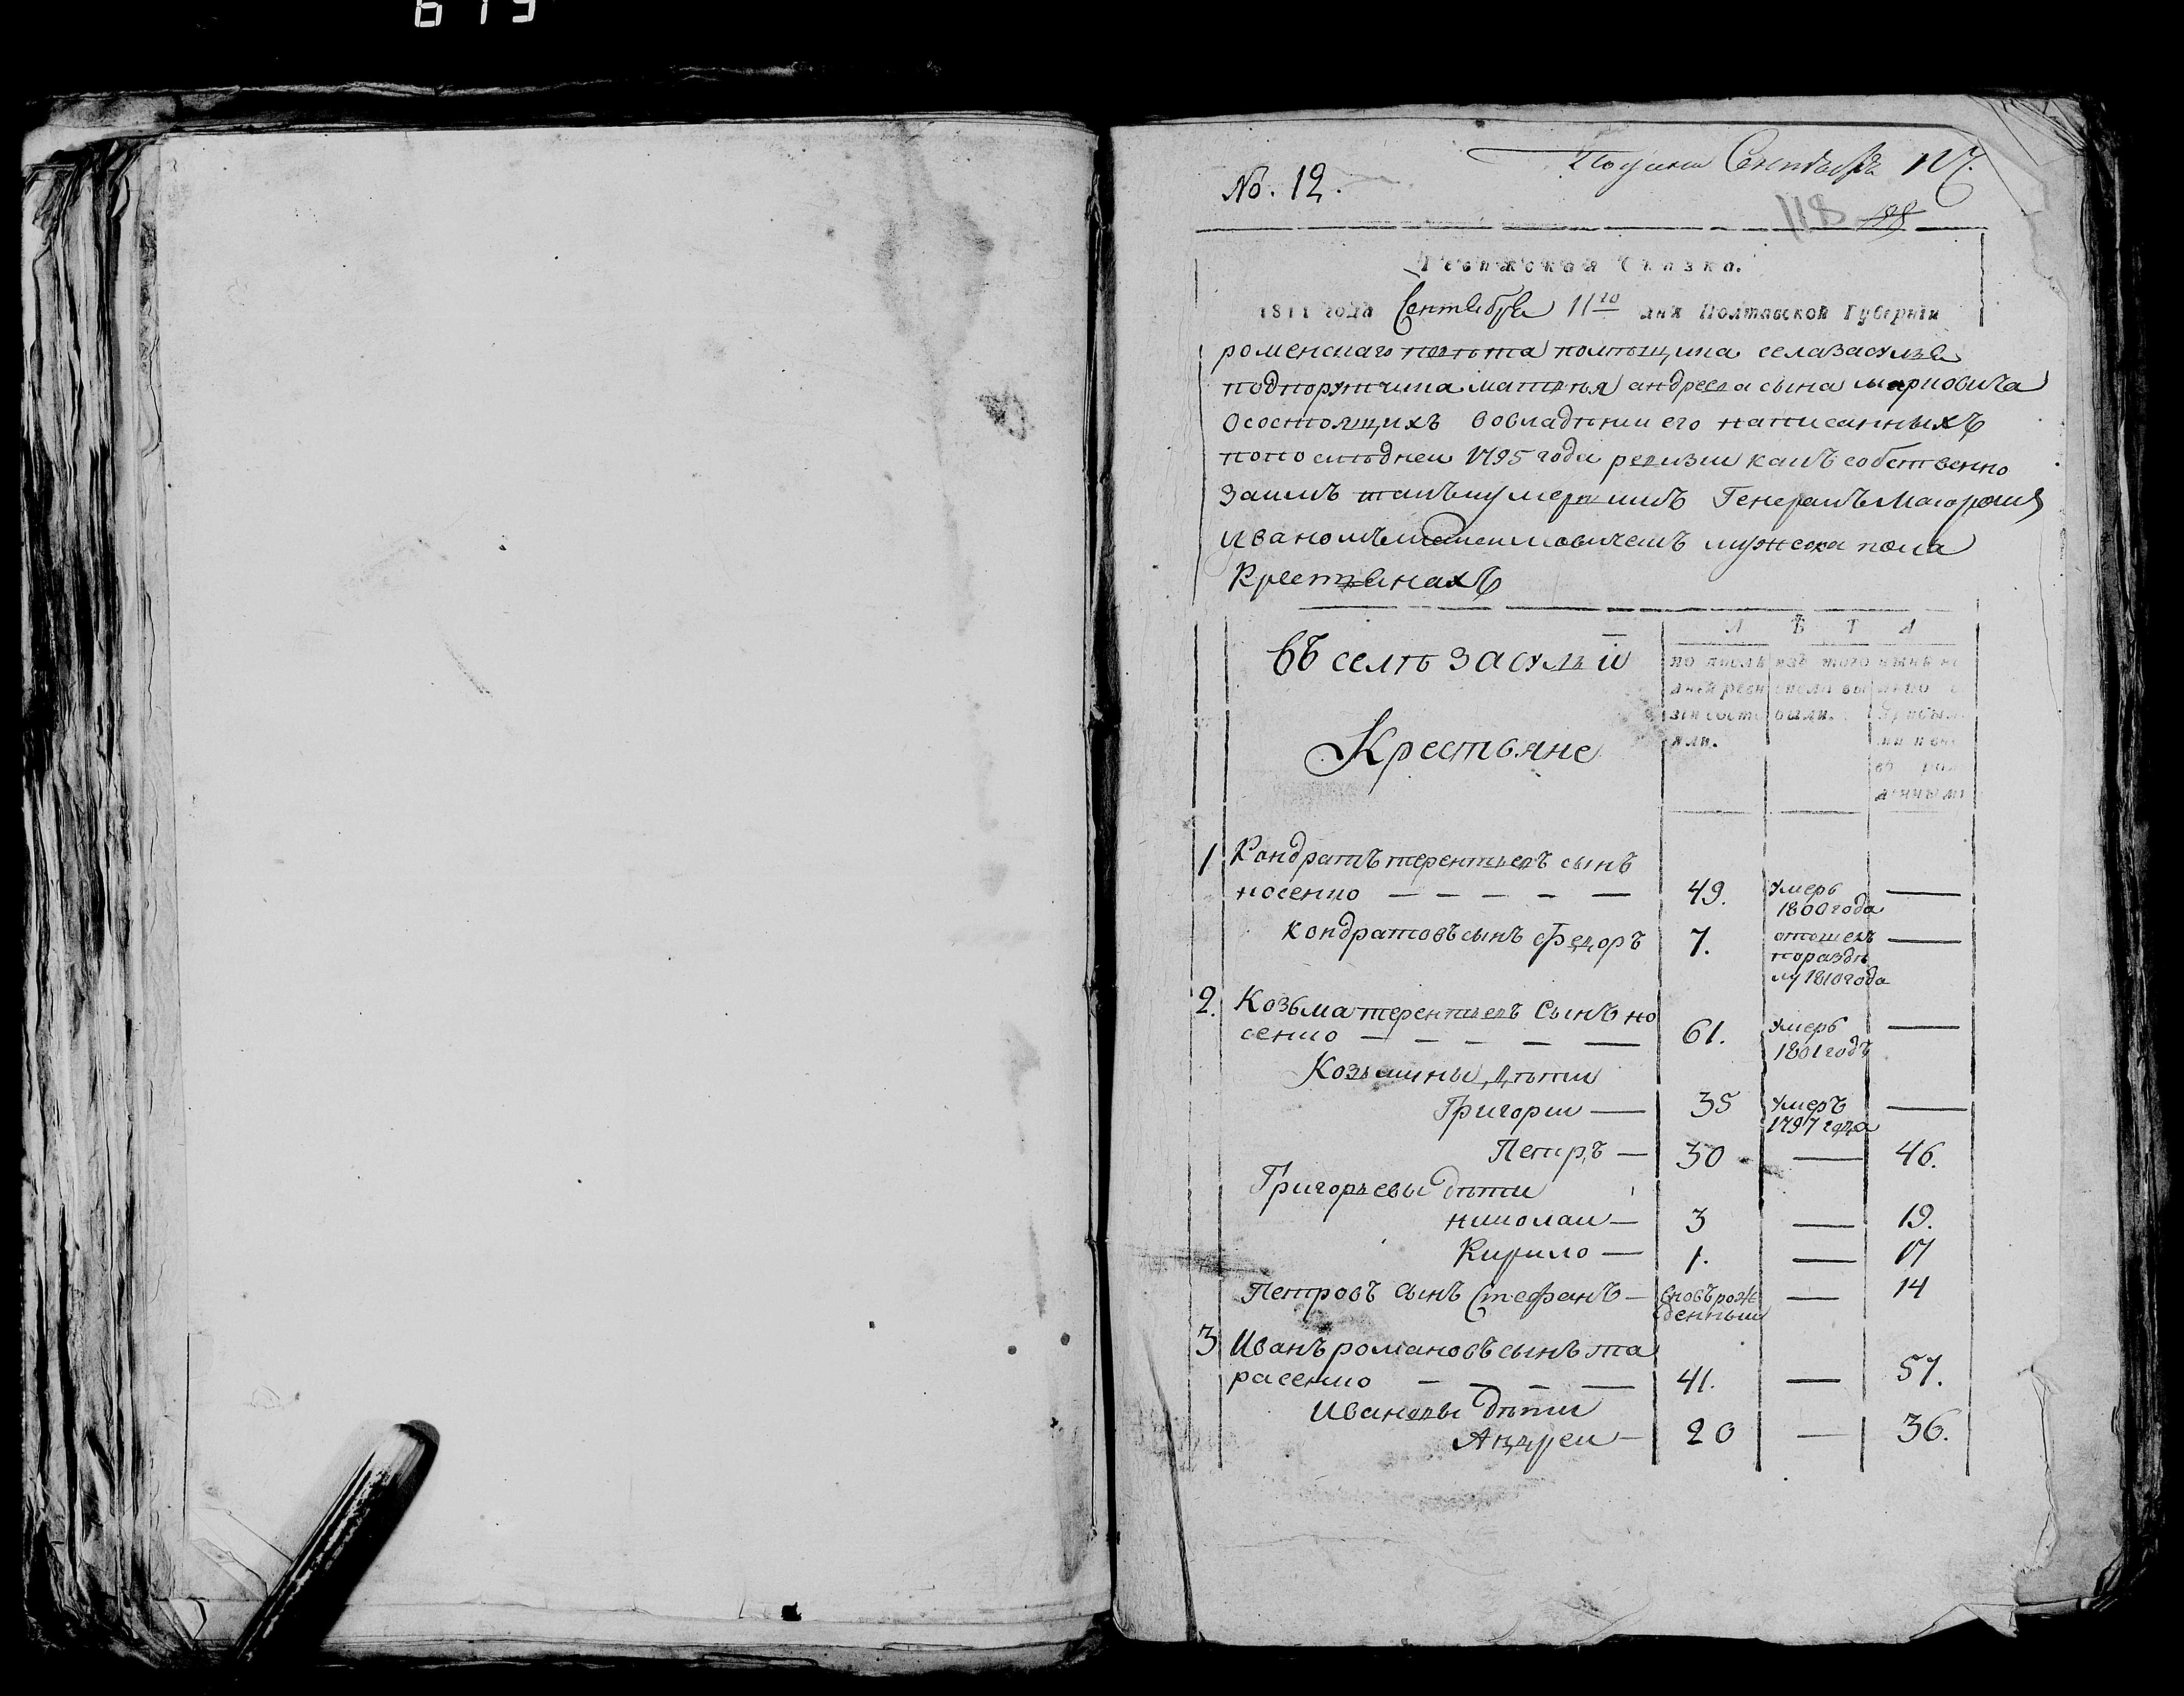 619
No. 12.
Сентября 17.
118
Ревижская Сказка.
1811 года Сентября 11го дня Полтавской Губернїи
роменскаго повѣта помѣщика села засулья
подпоручика матвѣя андреева сына марковича
о состоящихъ во владѣнии его написанныхъ
по последней 1795 года ревизии какъ собственно
за имъ такъ и умершимъ Генералъ Маіоромъ
иваномъ мужеска пола
Крестьянахъ
въ селѣ засульи
Крестьяне
Л Ѣ Т А
по послѣ
дней реви
зіи состо
яли.
изъ того
числа вы
были.
нынѣ на
лицо с
прибыл
ми и но
во рож
денными
1 Кондратъ терентьевъ сынъ
носенко — 49. умеръ 1800 года —
кондратовъ сынъ Федоръ 7. отошелъ по раздѣлу 1810 года —
2. Козьма терентьевъ Сынъ но
сенко — 61. умеръ 1801 годъ —
Козьмины дѣти
Григории — 35 умеръ 1797 года —
Петръ — 30 — 46.
Григорьевы дѣти
николаи — 3 — 19.
Кирило — 1. — 17
Петровъ сынъ Стефанъ — вновь рожденныи — 14
3 Иванъ романовъ сынъ та
расенко — 41. — 57.
Ивановы дѣти
Андреи — 20 — 36.